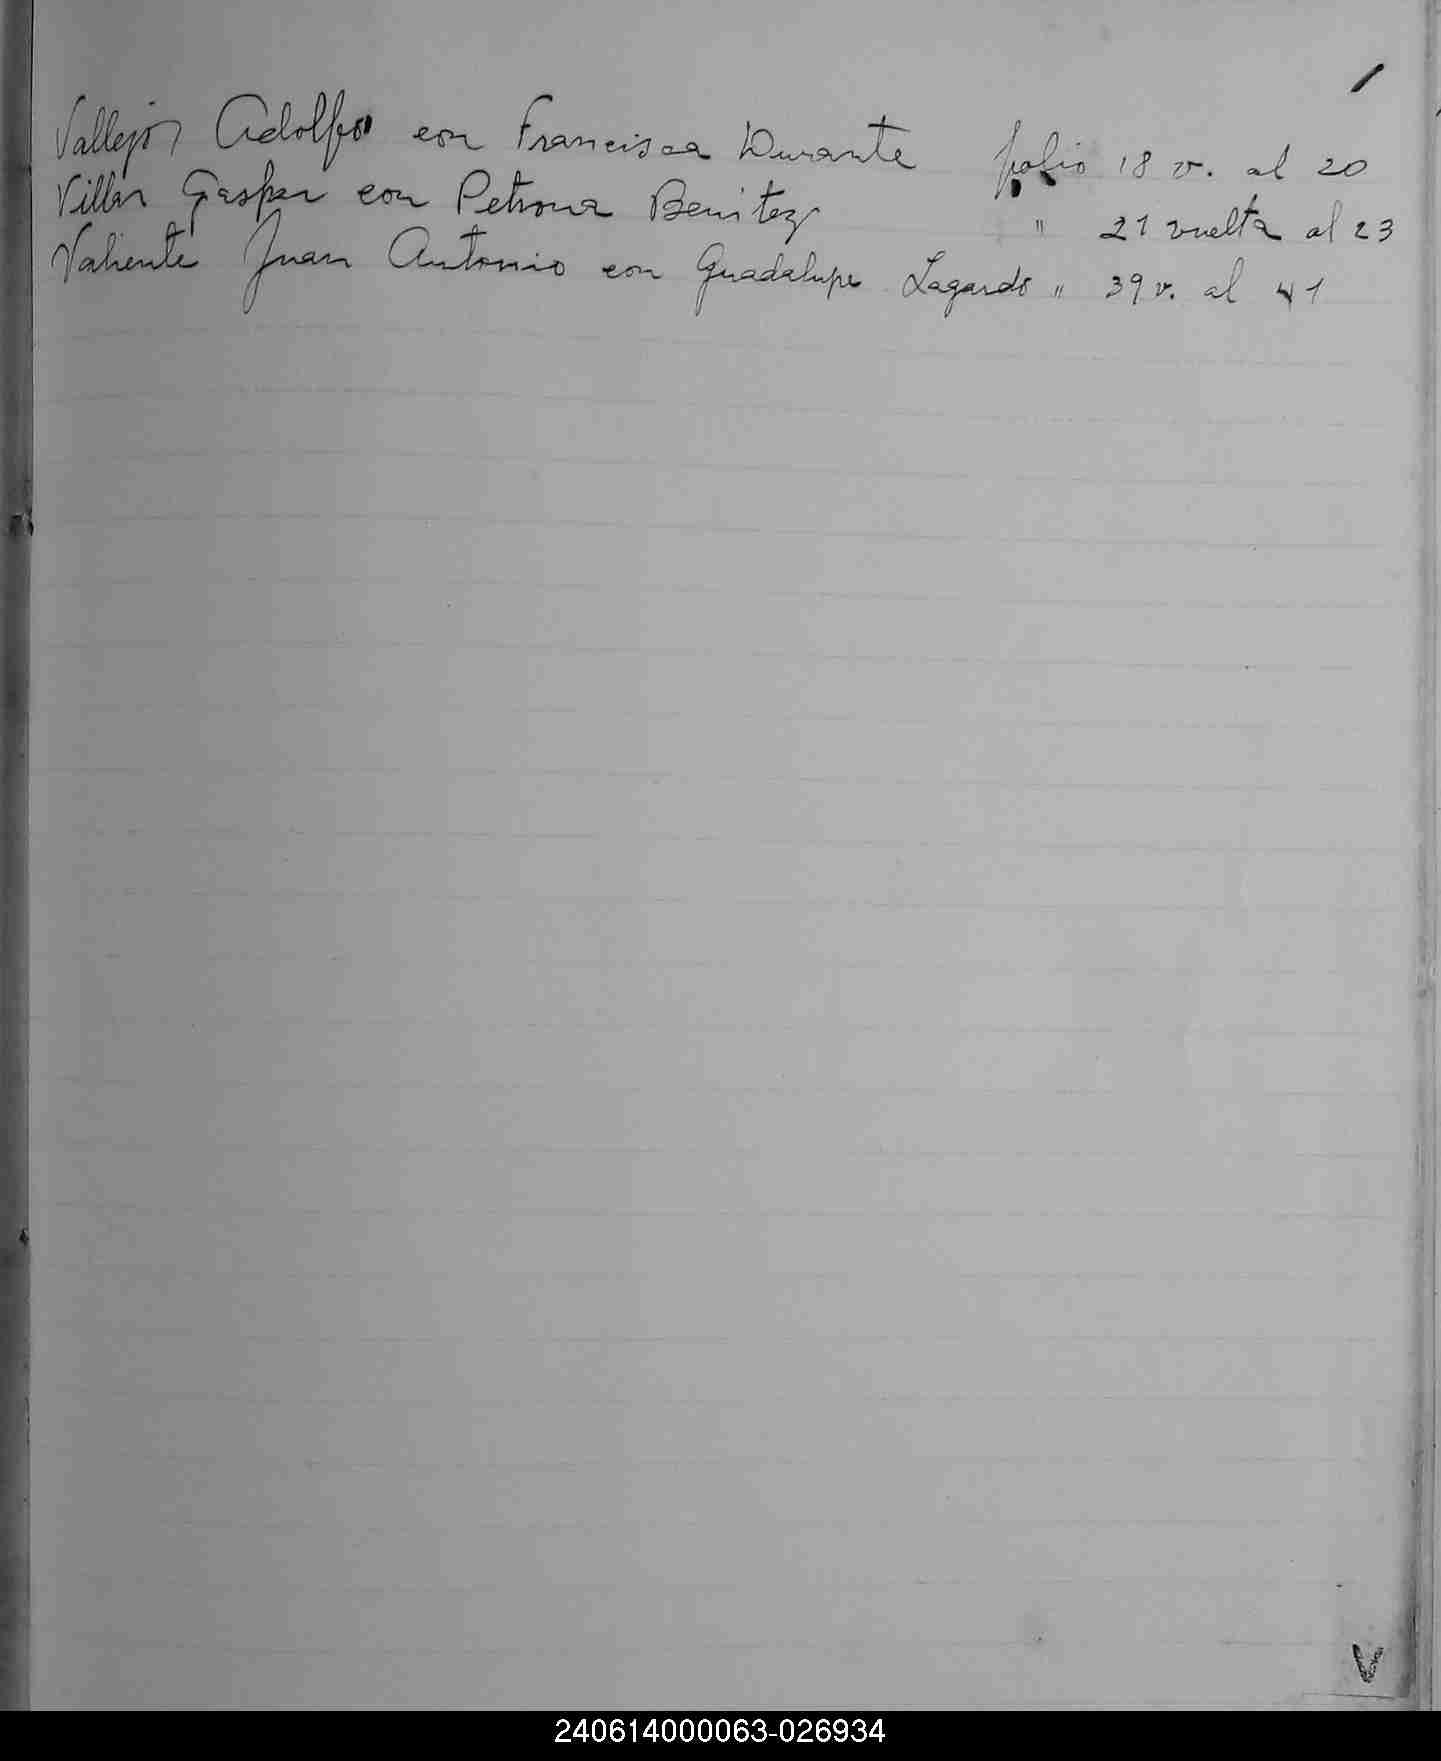 Vallejos Adolfo con Francisca Durante folio 18 v. al 20
Villar Gaspar con Petrona Benitez " 21 vuelta al 23
Valiente Juan Antonio con Guadalupe Lagardo " 39 v. al 41
V
240614000063-026934